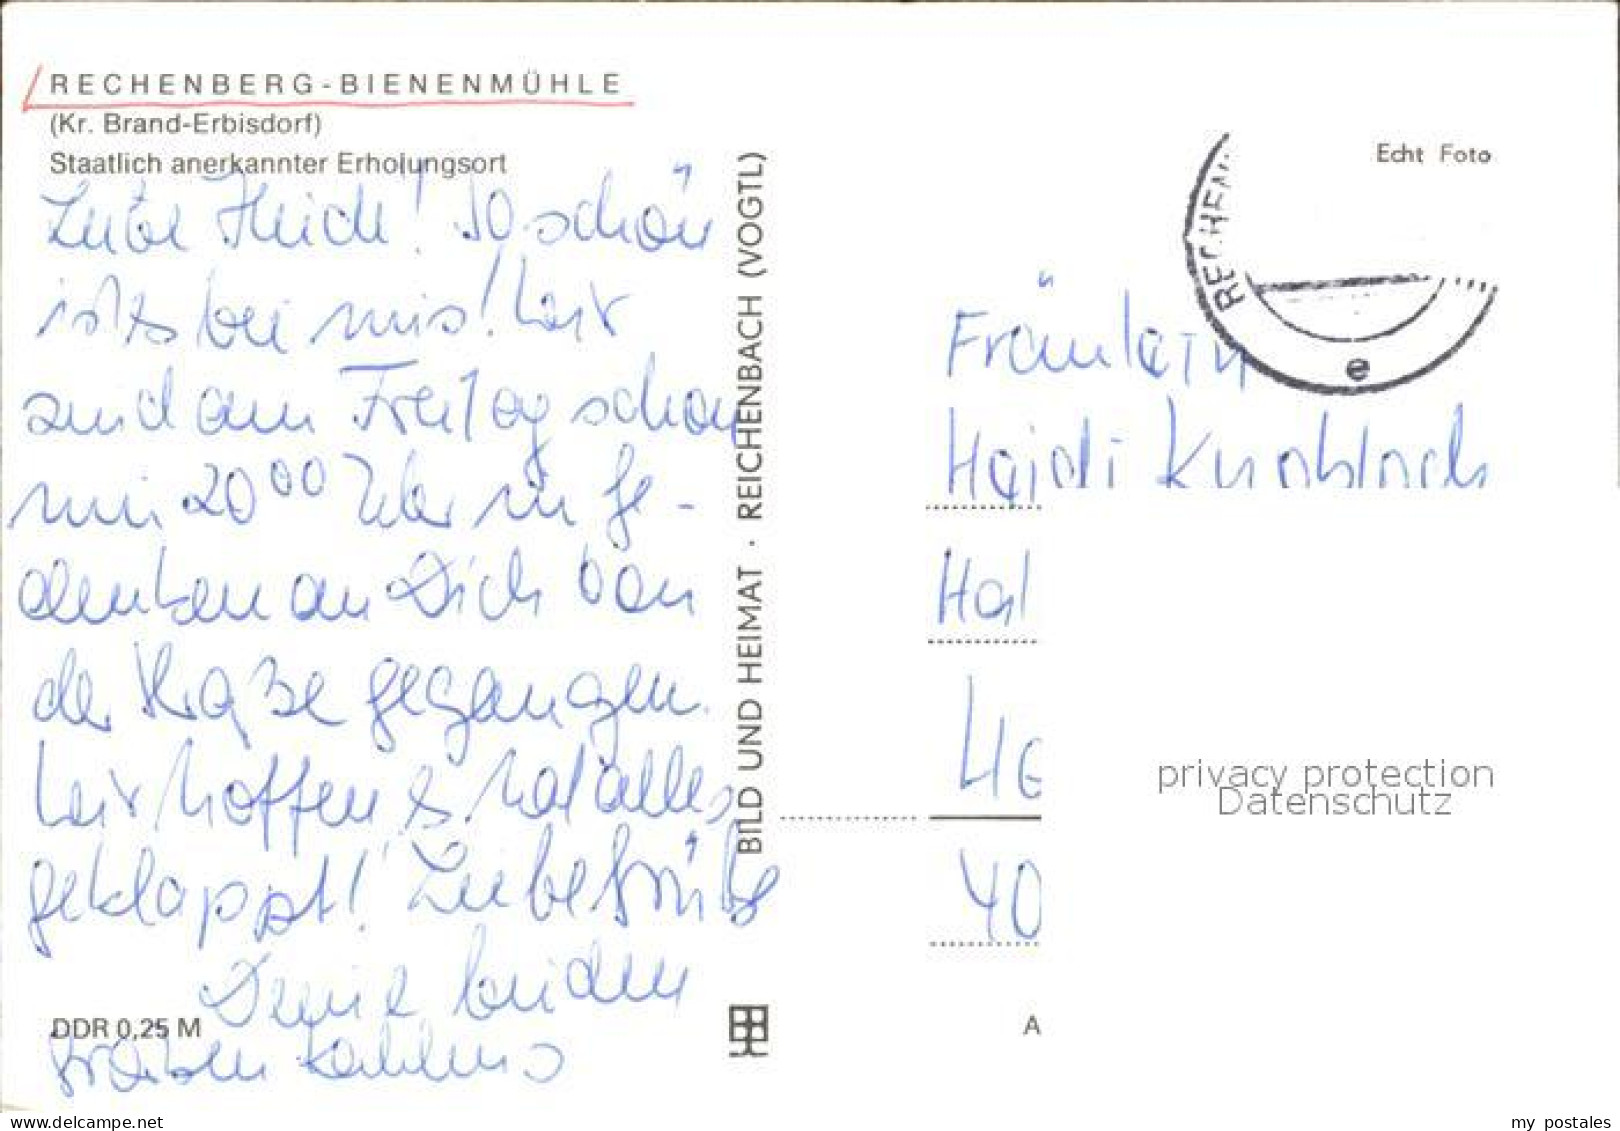 RECHENBERG-BIENENMÜHLE
(Kr. Brand-Erbisdorf)
Staatlich anerkannter Erholungsort
Liebe Heidi! So schön
ists bei uns! Wir
sind am Freitag schon
um 20⁰⁰ Uhr in Ge-
denken an Dich von
der Straße gegangen.
Wir hoffen es hat alles
geklappt! Liebe Grüße
Deine beiden
DDR 0,25 M
BILD UND HEIMAT · REICHENBACH (VOGTL)
Echt Foto
RECHEN
e
Fräulein
Heidi Knobloch
Hal
40
A
privacy protection
Datenschutz
www.delcampe.net
my_postales